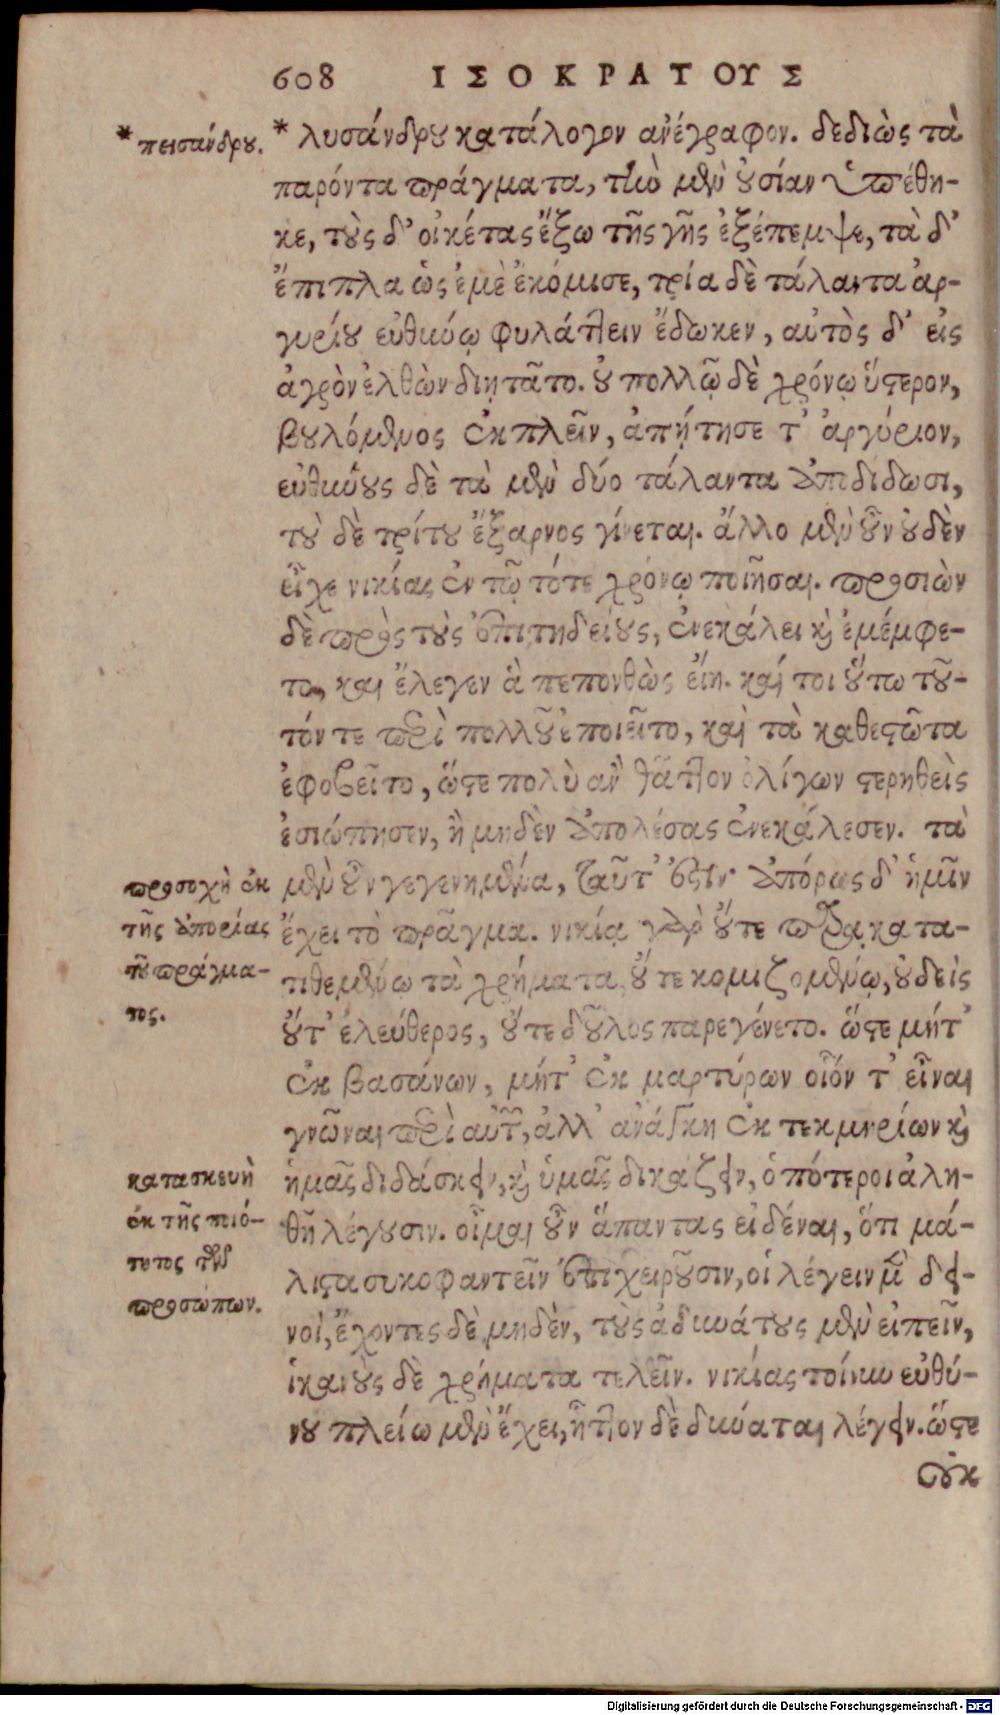 608 ΙΣΟΚΡΑΤΟΥΣ
* πεισάνδρου.
* λυσάνδρου κατάλογον ἀνέγραφον. δεδιὼς τὰ
παρόντα πράγματα, τὴν μὲν οὐσίαν ὑπέθη-
κε, τοὺς δ' οἰκέτας ἔξω τῆς γῆς ἐξέπεμψε, τὰ δ'
ἔπιπλα ὡς ἐμὲ ἐκόμισε, τρία δὲ τάλαντα ἀρ-
γυρίου εὐθύνῳ φυλάττειν ἔδωκεν, αὐτὸς δ' εἰς
ἀγρὸν ἐλθὼν διῃτᾶτο. οὐ πολλῷ δὲ χρόνῳ ὕστερον,
βουλόμενος ἐκπλεῖν, ἀπῄτησε τ' ἀργύριον,
εὐθύνους δὲ τὰ μὲν δύο τάλαντα ἀποδίδωσι,
τοῦ δὲ τρίτου ἔξαρνος γίνεται. ἄλλο μὲν οὖν οὐδὲν
εἶχε νικίας ἐν τῷ τότε χρόνῳ ποιῆσαι. προσιὼν
δὲ πρὸς τοὺς ἐπιτηδείους, ἐνεκάλει καὶ ἐμέμφε-
το, καὶ ἔλεγεν ἃ πεπονθὼς εἴη. καίτοι οὕτω τοῦ-
τόν τε περὶ πολλοῦ ἐποιεῖτο, καὶ τὰ καθεστῶτα
ἐφοβεῖτο, ὥστε πολὺ ἂν θᾶττον ὀλίγων στερηθεὶς
ἐσιώπησεν, ἢ μηδὲν ἀπολέσας ἐνεκάλεσεν. τὰ
προσοχὴ ἐκ
τῆς ἀπορίας
τοῦ πράγμα-
τος.
μὲν οὖν γεγενημένα, ταῦτ' ἐστίν· ἀπόρως δ' ἡμῖν
ἔχει τὸ πρᾶγμα. νικίᾳ γὰρ οὔτε παρακατα-
τιθεμένῳ τὰ χρήματα, οὔτε κομιζομένῳ, οὐδεὶς
οὔτ' ἐλεύθερος, οὔτε δοῦλος παρεγένετο. ὥστε μήτ'
ἐκ βασάνων, μήτ' ἐκ μαρτύρων οἷόν τ' εἶναι
γνῶναι περὶ αὐτῶν, ἀλλ' ἀνάγκη ἐκ τεκμηρίων καὶ
κατασκευὴ
ἐκ τῆς ποιό-
τητος τῶν
προσώπων.
ἡμᾶς διδάσκειν, καὶ ὑμᾶς δικάζειν, ὁπότεροι ἀλη-
θῆ λέγουσιν. οἶμαι οὖν ἅπαντας εἰδέναι, ὅτι μά-
λιστα συκοφαντεῖν ἐπιχειροῦσιν, οἱ λέγειν μὲν δει-
νοὶ, ἔχοντες δὲ μηδὲν, τοὺς ἀδυνάτους μὲν εἰπεῖν,
ἱκανοὺς δὲ χρήματα τελεῖν. νικίας τοίνυν εὐθύ-
νου πλείω μὲν ἔχει, ἧττον δὲ δύναται λέγειν. ὥστε
οὐκ
Digitalisierung gefördert durch die Deutsche Forschungsgemeinschaft - DFG